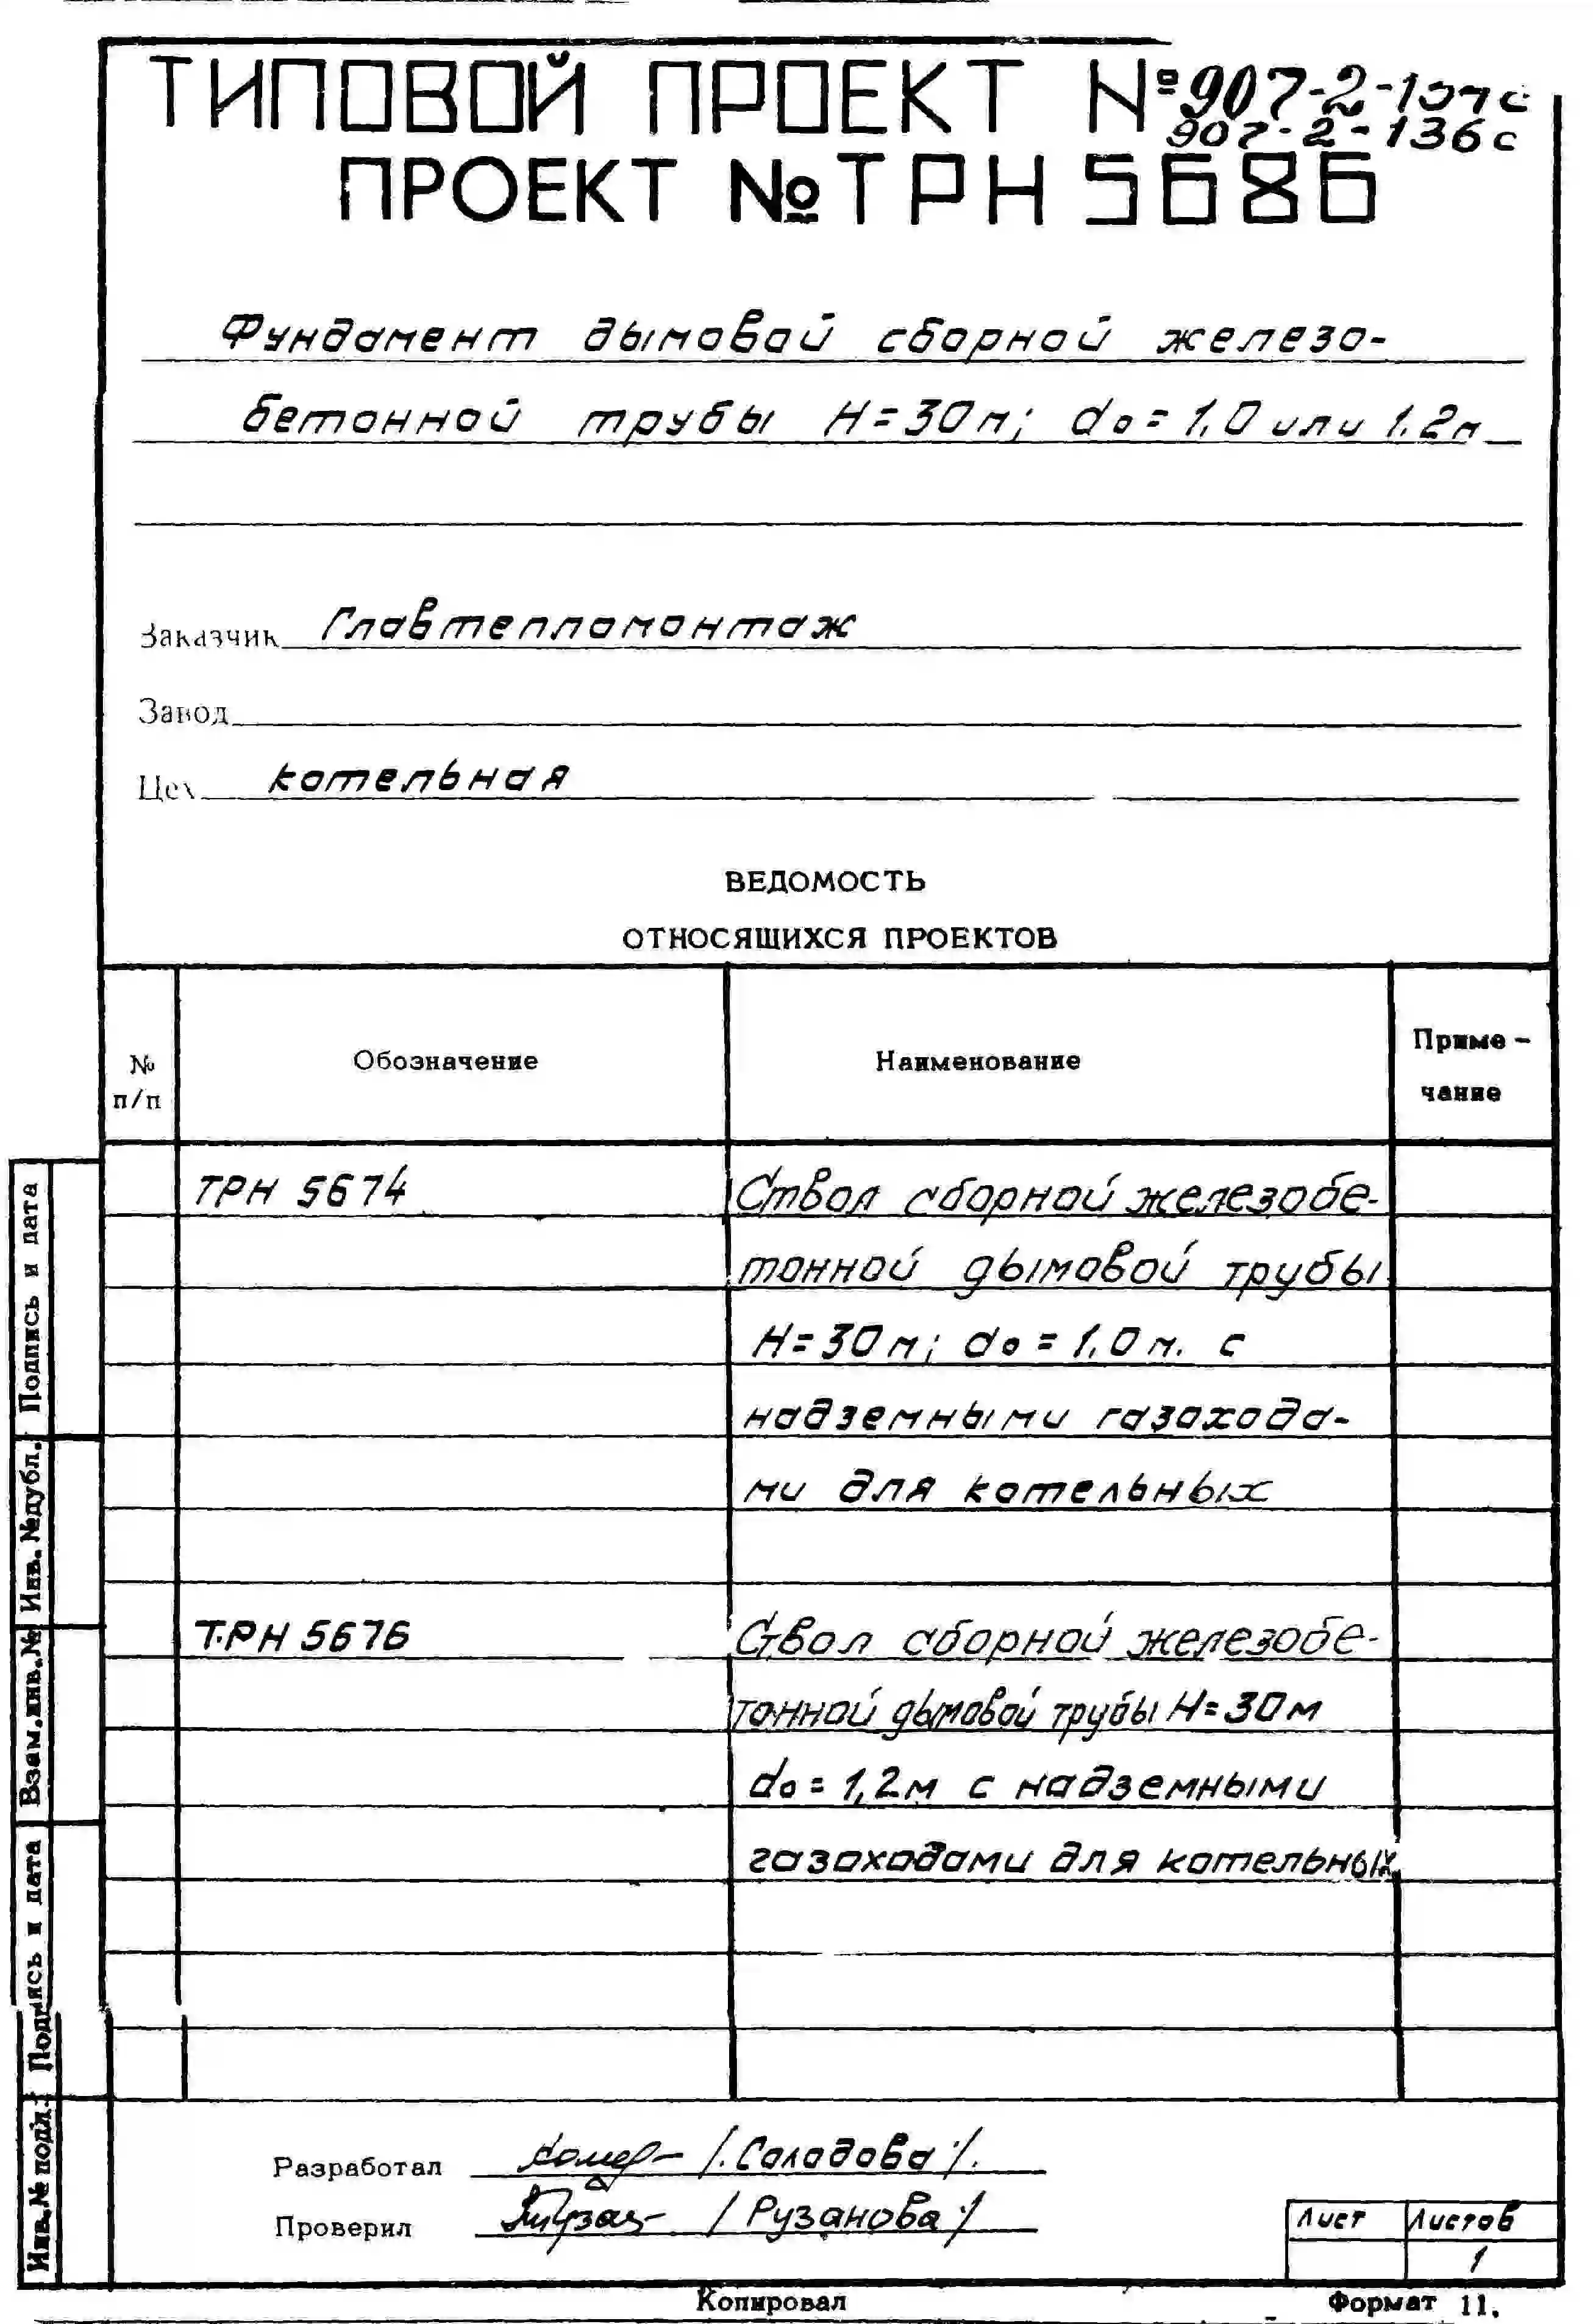 ТИПОВОЙ ПРОЕКТ №907-2-
907-2-136с
ПРОЕКТ № ТРН 5686
Фундамент дымовой сборной железо-
бетонной трубы H=30м; do=1,0 или 1.2м
Заказчик Главтепломонтаж
Завод
Цех котельная
ВЕДОМОСТЬ
ОТНОСЯЩИХСЯ ПРОЕКТОВ
№ п/п
Обозначение
Наименование
Приме-
чание
ТРН 5674
Ствол сборной железобе-
тонной дымовой трубы
H=30м; do=1,0м. с
надземными газохода-
ми для котельных
ТРН 5676
Ствол сборной железобе-
тонной дымовой трубы H=30м
do=1,2м с надземными
газоходами для котельных
Разработал /.Соладова/.
Проверил /Рузанова/
Лист Листов
1
Копировал
Формат 11.
Подпись и дата
Инв.№дубл.
Взам.инв.№
Подпись и дата
Инв.№ подл.